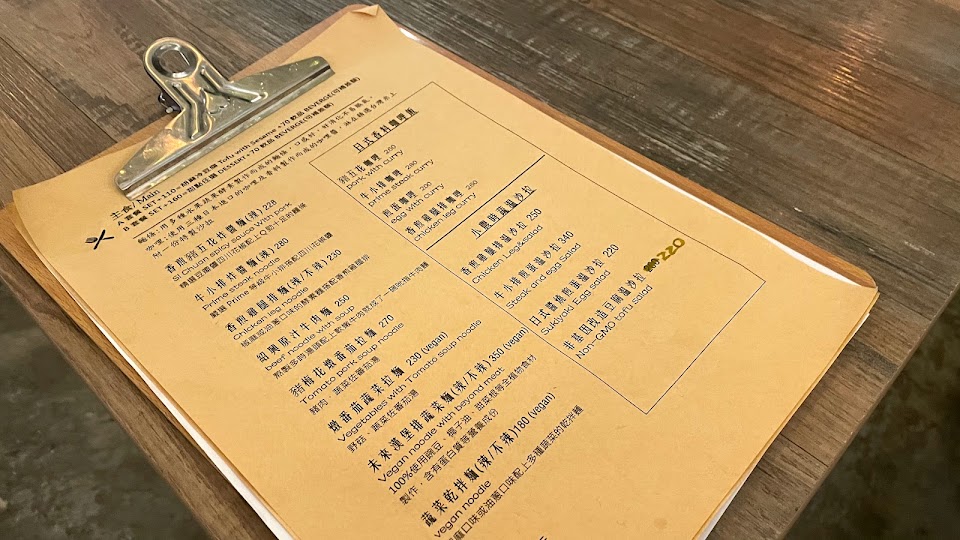 主食/Main
A 套餐 SET+110=胡麻冷豆腐 Tofu with Sesame +70 飲品 BEVERGE(可補差額)
B 套餐 SET+160=甜點任選 DESSERT+70 飲品 BEVERGE(可補差額)
香煎豬五花炸醬麵(辣) 228
Si Chuan soy sauce with pork
牛小排炸醬麵(辣) 280
Prime steak noodle
香煎雞腿排麵(辣/不辣) 230
Chicken leg noodle
紹興原汁牛肉麵 250
beer noodle with soup
豬梅花燉番茄拉麵 270
Tomato pork soup noodle
豬肉、蔬菜佐番茄湯
燉番茄蔬菜拉麵 230 (vegan)
Vegetables with Tomato soup noodle
野菇、蔬菜佐番茄湯
未來漢堡排蔬菜麵(辣/不辣)350 (vegan)
Vegan noodle with beyond meat
100%使用豌豆、椰子油、甜菜根等全植物食材
製作，含有蛋白質等營養成份
蔬菜乾拌麵(辣/不辣)180 (vegan)
vegan noodle
麻口味或油蔥口味配上多種蔬菜的乾拌麵
日式香料咖哩飯
豬五花咖哩 250
pork with curry
牛小排咖哩 280
prime steak curry
煎蛋咖哩 200
egg with curry
香煎雞腿排咖哩 260
chicken leg curry
小農時蔬溫沙拉
香煎雞腿排溫沙拉 250
Chicken Leg&salad
牛小排煎蛋溫沙拉 340
Steak and egg Salad
日式醬燒煎蛋溫沙拉 220
Sukiyaki Egg salad
非基因改造豆腐溫沙拉 220
Non-GMO tofu salad